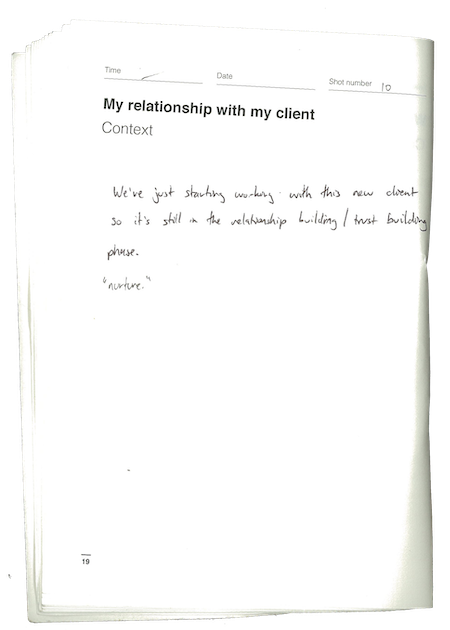 Time
Date
Shot number 10
My relationship with my client
Context
We've just starting working with this new client
so it's still in the relationship building / trust building
phase.
"nurture."
19